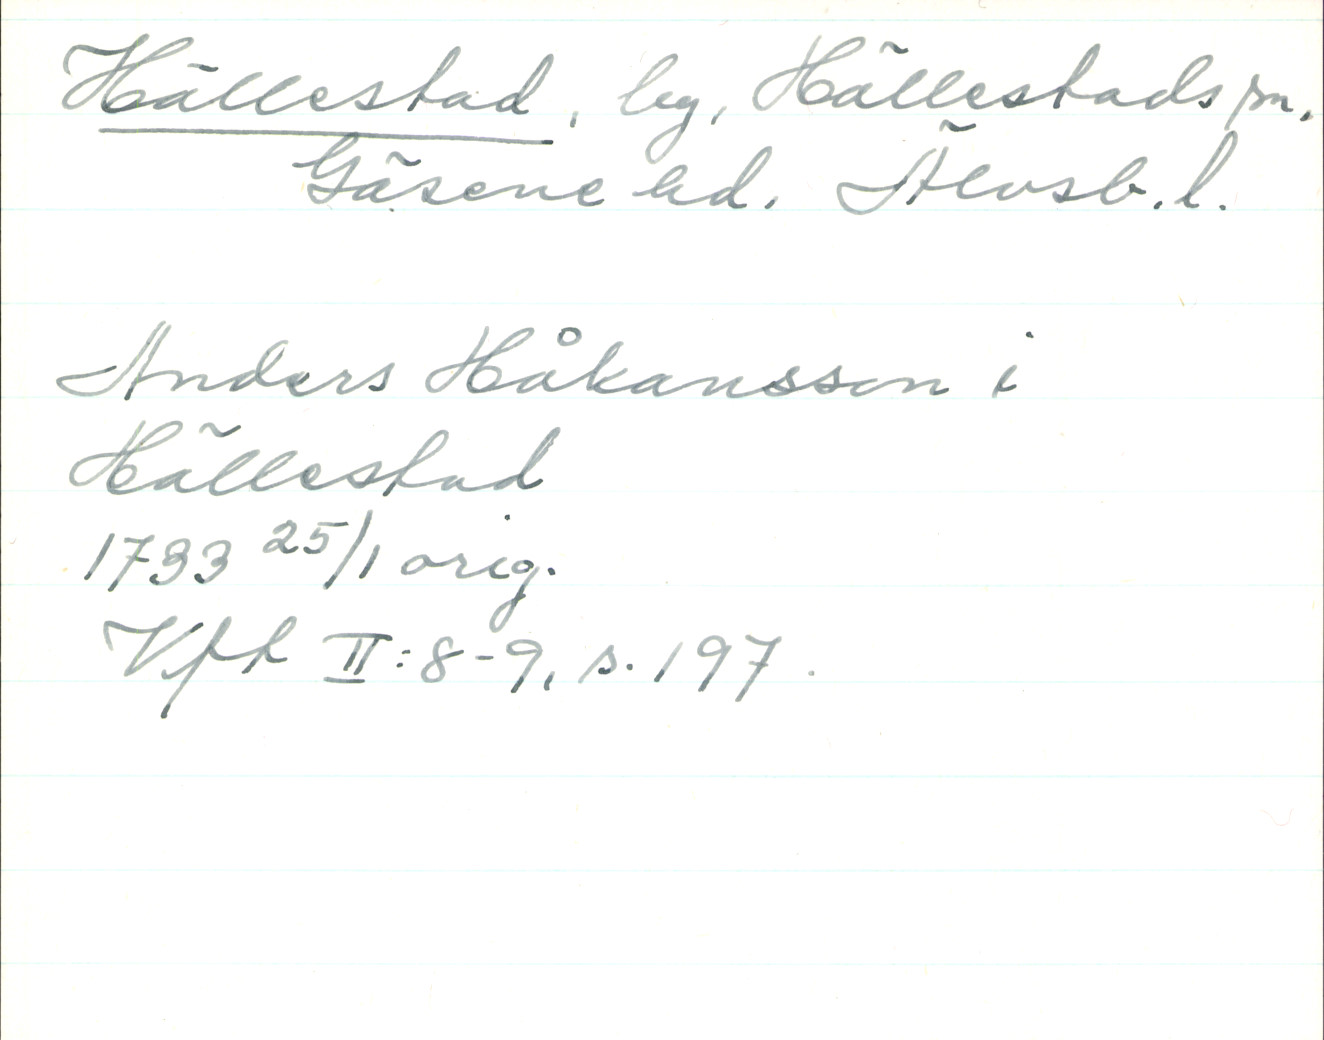 Hällestad, by, Hällestads sn,
Gäsene hd. Älvsb. l.
Anders Håkansson i
Hällestad
1733 25/1 orig.
Vft II:8-9, s. 197.